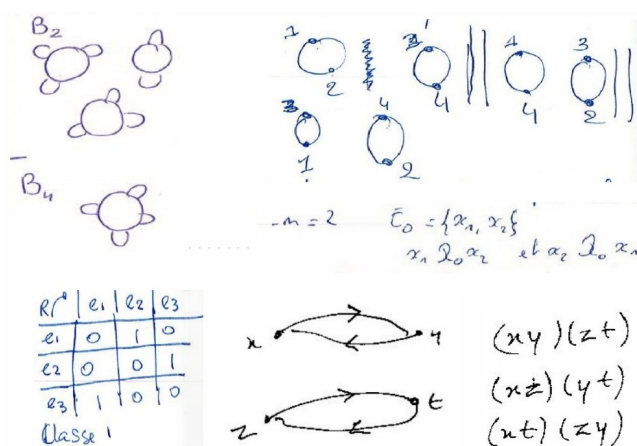 B2
1
2
1
4
4
4
3
2
3
1
4
2
B4
n = 2 E0 = {x1, x2}
x1 R0 x2 et x2 R0 x1
R | e1 | e2 | e3
e1 | 0 | 1 | 0
e2 | 0 | 0 | 1
e3 | 1 | 0 | 0
Classe 1
x
y
z
t
(xy)(zt)
(xz)(yt)
(xt)(zy)